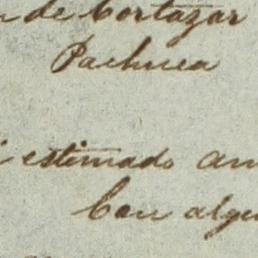 de Cortazar
Pachuca
estimado am
Con algu